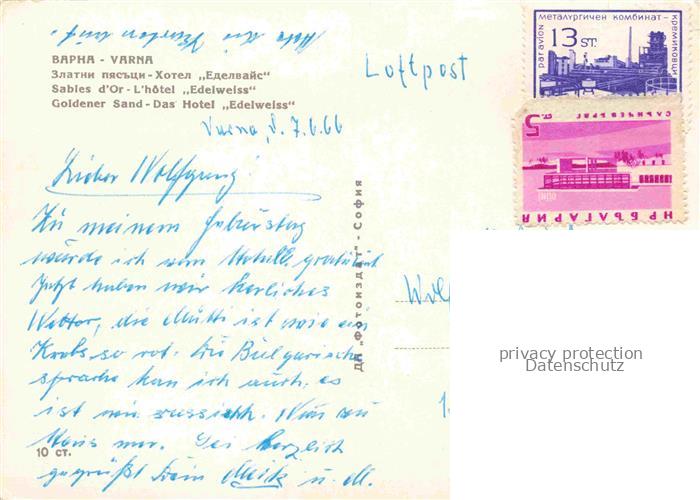 ВАРНА - VARNA
Златни пясъци - Хотел „Еделвайс“
Sables d'Or - L'hôtel „Edelweiss“
Goldener Sand - Das Hotel „Edelweiss“
Luftpost
par avion
МЕТАЛУРГИЧЕН КОМБИНАТ - КРЕМИКОВЦИ
13 ST.
СЛЪНЧЕВ БРЯГ
5 СТ.
НР БЪЛГАРИЯ
Varna, d. 7.6.66
Lieber Wolfgang!
Zu meinem Geburtstag
wurde ich vom Hotel gratuliert
Jetzt haben wir herliches
Wetter, die Mutti ist wie ein
Krebs so rot. Die Bulgarische
sprache kan ich auch, es
ist wie russisch.
Sei herzlich
gegrüßt Dein u. M.
ДП „Фотоиздат“ - София
10 ст.
privacy protection
Datenschutz